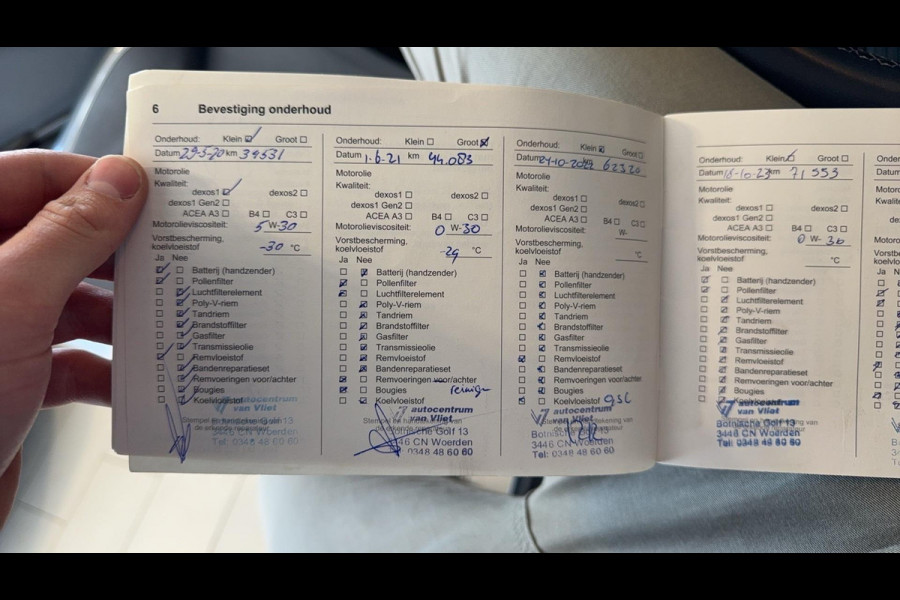 6 Bevestiging onderhoud
Onderhoud: Klein Groot
Datum 29-5-20 km 39531
Motorolie
Kwaliteit:
dexos1 dexos2
dexos1 Gen2
ACEA A3 B4 C3
Motorolieviscositeit: 5 W-30
Vorstbescherming,
koelvloeistof -30 °C
Ja Nee
Batterij (handzender)
Pollenfilter
Luchtfilterelement
Poly-V-riem
Tandriem
Brandstoffilter
Gasfilter
Transmissieolie
Remvloeistof
Bandenreparatieset
Remvoeringen voor/achter
Bougies
Koelvloeistof
autocentrum
van Vliet
Botnische Golf 13
3446 CN Woerden
Tel: 0348 48 60 60
Onderhoud: Klein Groot
Datum 1-6-21 km 44.083
Motorolie
Kwaliteit:
dexos1 dexos2
dexos1 Gen2
ACEA A3 B4 C3
Motorolieviscositeit: 0 W-30
Vorstbescherming,
koelvloeistof -29 °C
Ja Nee
Batterij (handzender)
Pollenfilter
Luchtfilterelement
Poly-V-riem
Tandriem
Brandstoffilter
Gasfilter
Transmissieolie
Remvloeistof
Bandenreparatieset
Remvoeringen voor/achter
Bougies reinigen
Koelvloeistof
autocentrum
van Vliet
Botnische Golf 13
3446 CN Woerden
0348 48 60 60
Onderhoud: Klein Groot
Datum 24-10-2022 62320
Motorolie
Kwaliteit:
dexos1 dexos2
dexos1 Gen2
ACEA A3 B4 C3
Motorolieviscositeit: W-
Vorstbescherming,
koelvloeistof °C
Ja Nee
Batterij (handzender)
Pollenfilter
Luchtfilterelement
Poly-V-riem
Tandriem
Brandstoffilter
Gasfilter
Transmissieolie
Remvloeistof
Bandenreparatieset
Remvoeringen voor/achter
Bougies
Koelvloeistof
autocentrum
van Vliet
Botnische Golf 13
3446 CN Woerden
Tel: 0348 48 60 60
Onderhoud: Klein Groot
Datum 18-10-23 km 71553
Motorolie
Kwaliteit:
dexos1 dexos2
dexos1 Gen2
ACEA A3 B4 C3
Motorolieviscositeit: 0 W-30
Vorstbescherming,
koelvloeistof °C
Ja Nee
Batterij (handzender)
Pollenfilter
Luchtfilterelement
Poly-V-riem
Tandriem
Brandstoffilter
Gasfilter
Transmissieolie
Remvloeistof
Bandenreparatieset
Remvoeringen voor/achter
Bougies
Koelvloeistof
autocentrum
van Vliet
Botnische Golf 13
3446 CN Woerden
Tel: 0348 48 60 60